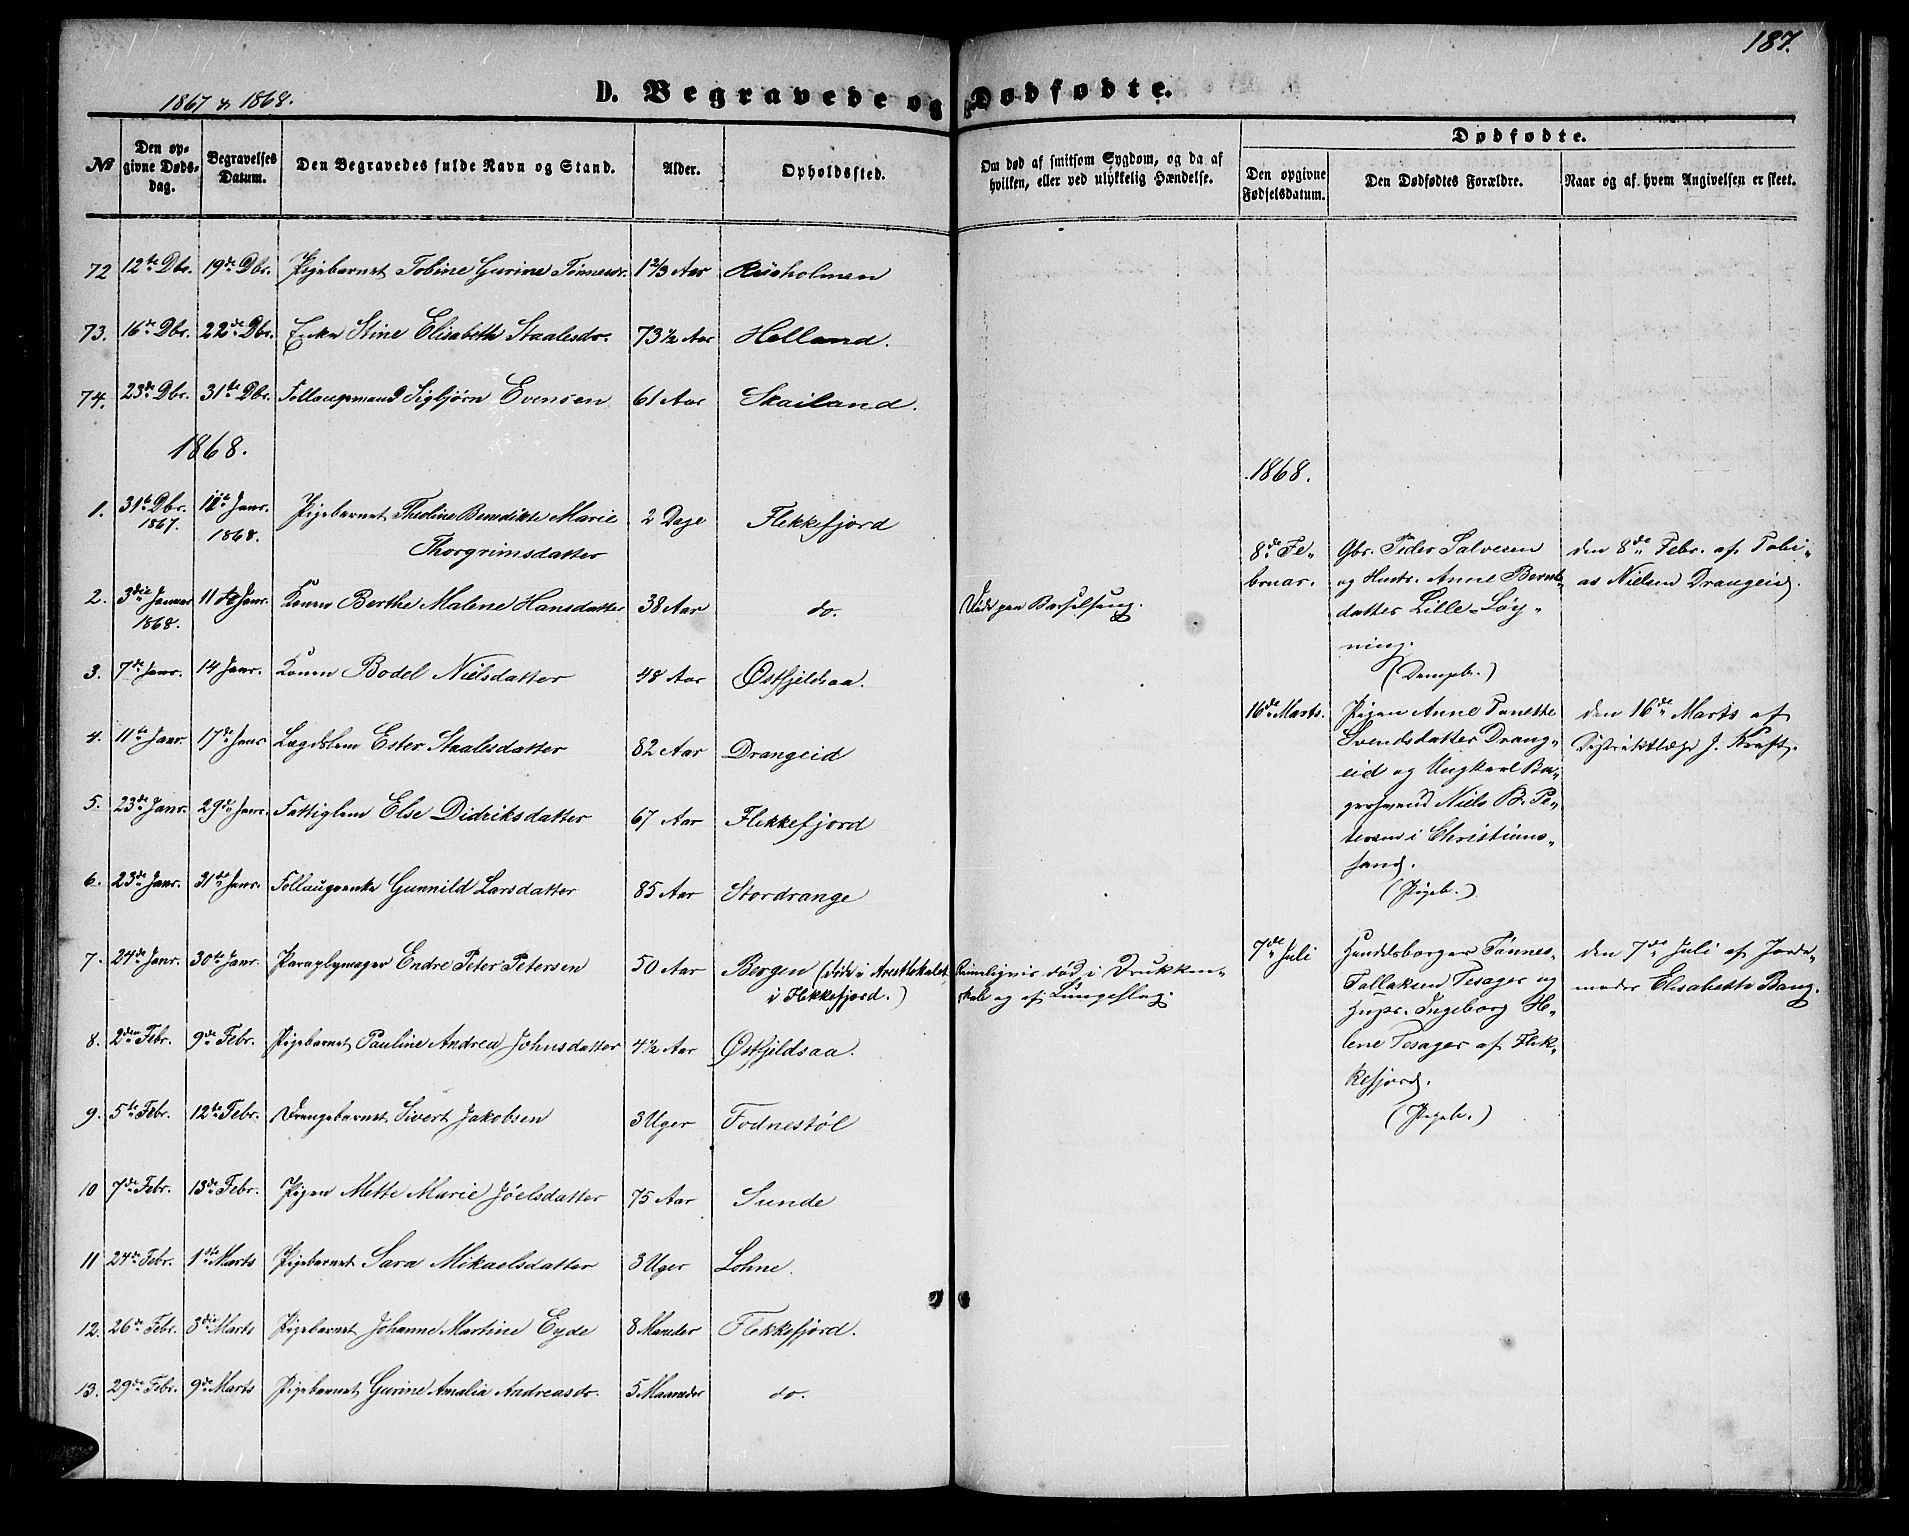 187.
1867 & 1868.
D. Begravede og Dødfødte.
No
Den opgivne Dødsdag.
Begravelses Datum.
Den Begravedes fulde Navn og Stand.
Alder.
Opholdssted.
Om død af smitsom Sygdom, og da af hvilken, eller ved ulykkelig Hændelse.
Dødfødte.
Den opgivne Fødselsdatum.
Den Dødfødtes Forældre.
Naar og af hvem Angivelsen er skeet.
72 12te Dbr. 19de Dbr. Pigebarnet Tobine Gurine Tønnesdr. 1 2/3 Aar
73. 16de Dbr. 22de Dbr. Enke Stine Elisabeth Staalesdr. 73 1/2 Aar Helland.
74. 23de Dbr. 31te Dbr. Follaugsmand Sigbjørn Evensen 61 Aar Skailand.
1868.
1. 31te Dbr. 1867. Janr. 1868. Pigebarnet Theoline Benedikte Marie 2 Dage Flekkefjord
Thorgrimsdatter
2. 3die Januar 1868. 11te Janr. Konen Berthe Malene Hansdatter 38 Aar do. Død paa Barselseng.
3. 7de Janr. 14 Janr. Konen Bodel Nielsdatter 48 Aar Østfjeldsaa.
4. 11te Janr 17de Janr Lægdslem Ester Staalesdatter 82 Aar Drangeid
5. 23de Janr. 29de Janr. Fattiglem Else Didriksdatter 67 Aar Flekkefjord
6. 23de Janr. 31te Janr. Follaugsenke Gunnild Larsdatter 85 Aar Stordrange
7. 24de Janr. 30te Janr. Paraplymager Endre Peter Petersen 50 Aar Bergen (døde i Arestlokalet
i Flekkefjord.)
Rimeligvis død i Drukken-
skab og af Lungeslag.
8. 2den Febr. 9de Febr. Pigebarnet Pauline Andrea Johnsdatter 4 1/2 Aar Østfjeldsaa.
9. 5te Febr. 12te Febr. Drengebarnet Sivert Jakobsen 3 Uger Fodnestøl
10 7de Febr. 13de Febr. Pigen Mette Marie Jôelsdatter 75 Aar Sunde
11 24de Febr. 1ste Marts Pigebarnet Sara Mikaelsdatter 3 Uger Lohne.
12. 26de Febr. 3die Marts Pigebarnet Johanne Martine Eyde 8 Maaneder Flekkefjord.
13. 29de Febr. 9de Marts Pigebarnet Gurine Amalia Andreasdr. 5 Maaneder do.
1868.
8de Fe-
bruar.
Gbr. Peder Salvesen
og Hustr. Anne Bernt-
datter Lille-Løy-
ning.
(Drengeb.)
den 8de Febr. af Tobi-
as Nielsen Drangeid.
16de Marts.
Pigen Anne Tonette
Svendsdatter Drang-
eid og Ungkarl Ba-
gersvend Niels B. Pe-
tersen i Christians-
sand.
(Pigeb.)
den 16de Marts af
Distriktslæge J. Kraft.
7de Juli
Handelsborger Tønnes
Tallaksen Tesager og
Hustr. Ingeborg He-
lene Tesager af Flek-
kefjord.
(Pigeb.)
den 7de Juli af Jorde-
moder Elisabetta Bang.